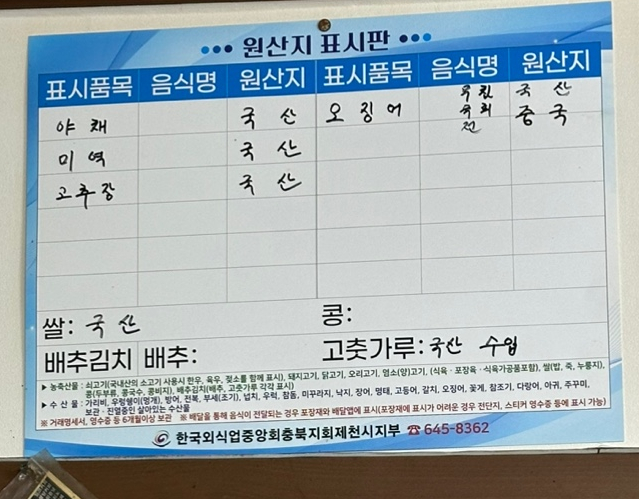 원산지 표시판
표시품목 음식명 원산지 표시품목 음식명 원산지
야채 국산 오징어 국산
육회
전 중국
미역 국산
고추장 국산
쌀: 국산 콩:
배추김치 배추: 고춧가루: 국산 수입
▶ 농축산물 : 쇠고기(국내산의 소고기 사용시 한우, 육우, 젖소를 함께 표시), 돼지고기, 닭고기, 오리고기, 염소(양)고기, (식육ㆍ포장육ㆍ식육가공품포함), 쌀(밥, 죽, 누룽지),
콩(두부류, 콩국수, 콩비지), 배추김치(배추, 고춧가루 각각 표시)
▶ 수 산 물 : 가리비, 우렁쉥이(멍게), 방어, 전복, 부세(조기), 넙치, 우럭, 참돔, 미꾸라지, 낙지, 장어, 명태, 고등어, 갈치, 오징어, 꽃게, 참조기, 다랑어, 아귀, 주꾸미,
보관ㆍ진열중인 살아있는 수산물
※ 거래명세서, 영수증 등 6개월이상 보관 ※ 배달을 통해 음식이 전달되는 경우 포장재와 배달앱에 표시(포장재에 표시가 어려운 경우 전단지, 스티커 영수증 등에 표시 가능)
한국외식업중앙회충북지회제천시지부 ☎ 645-8362